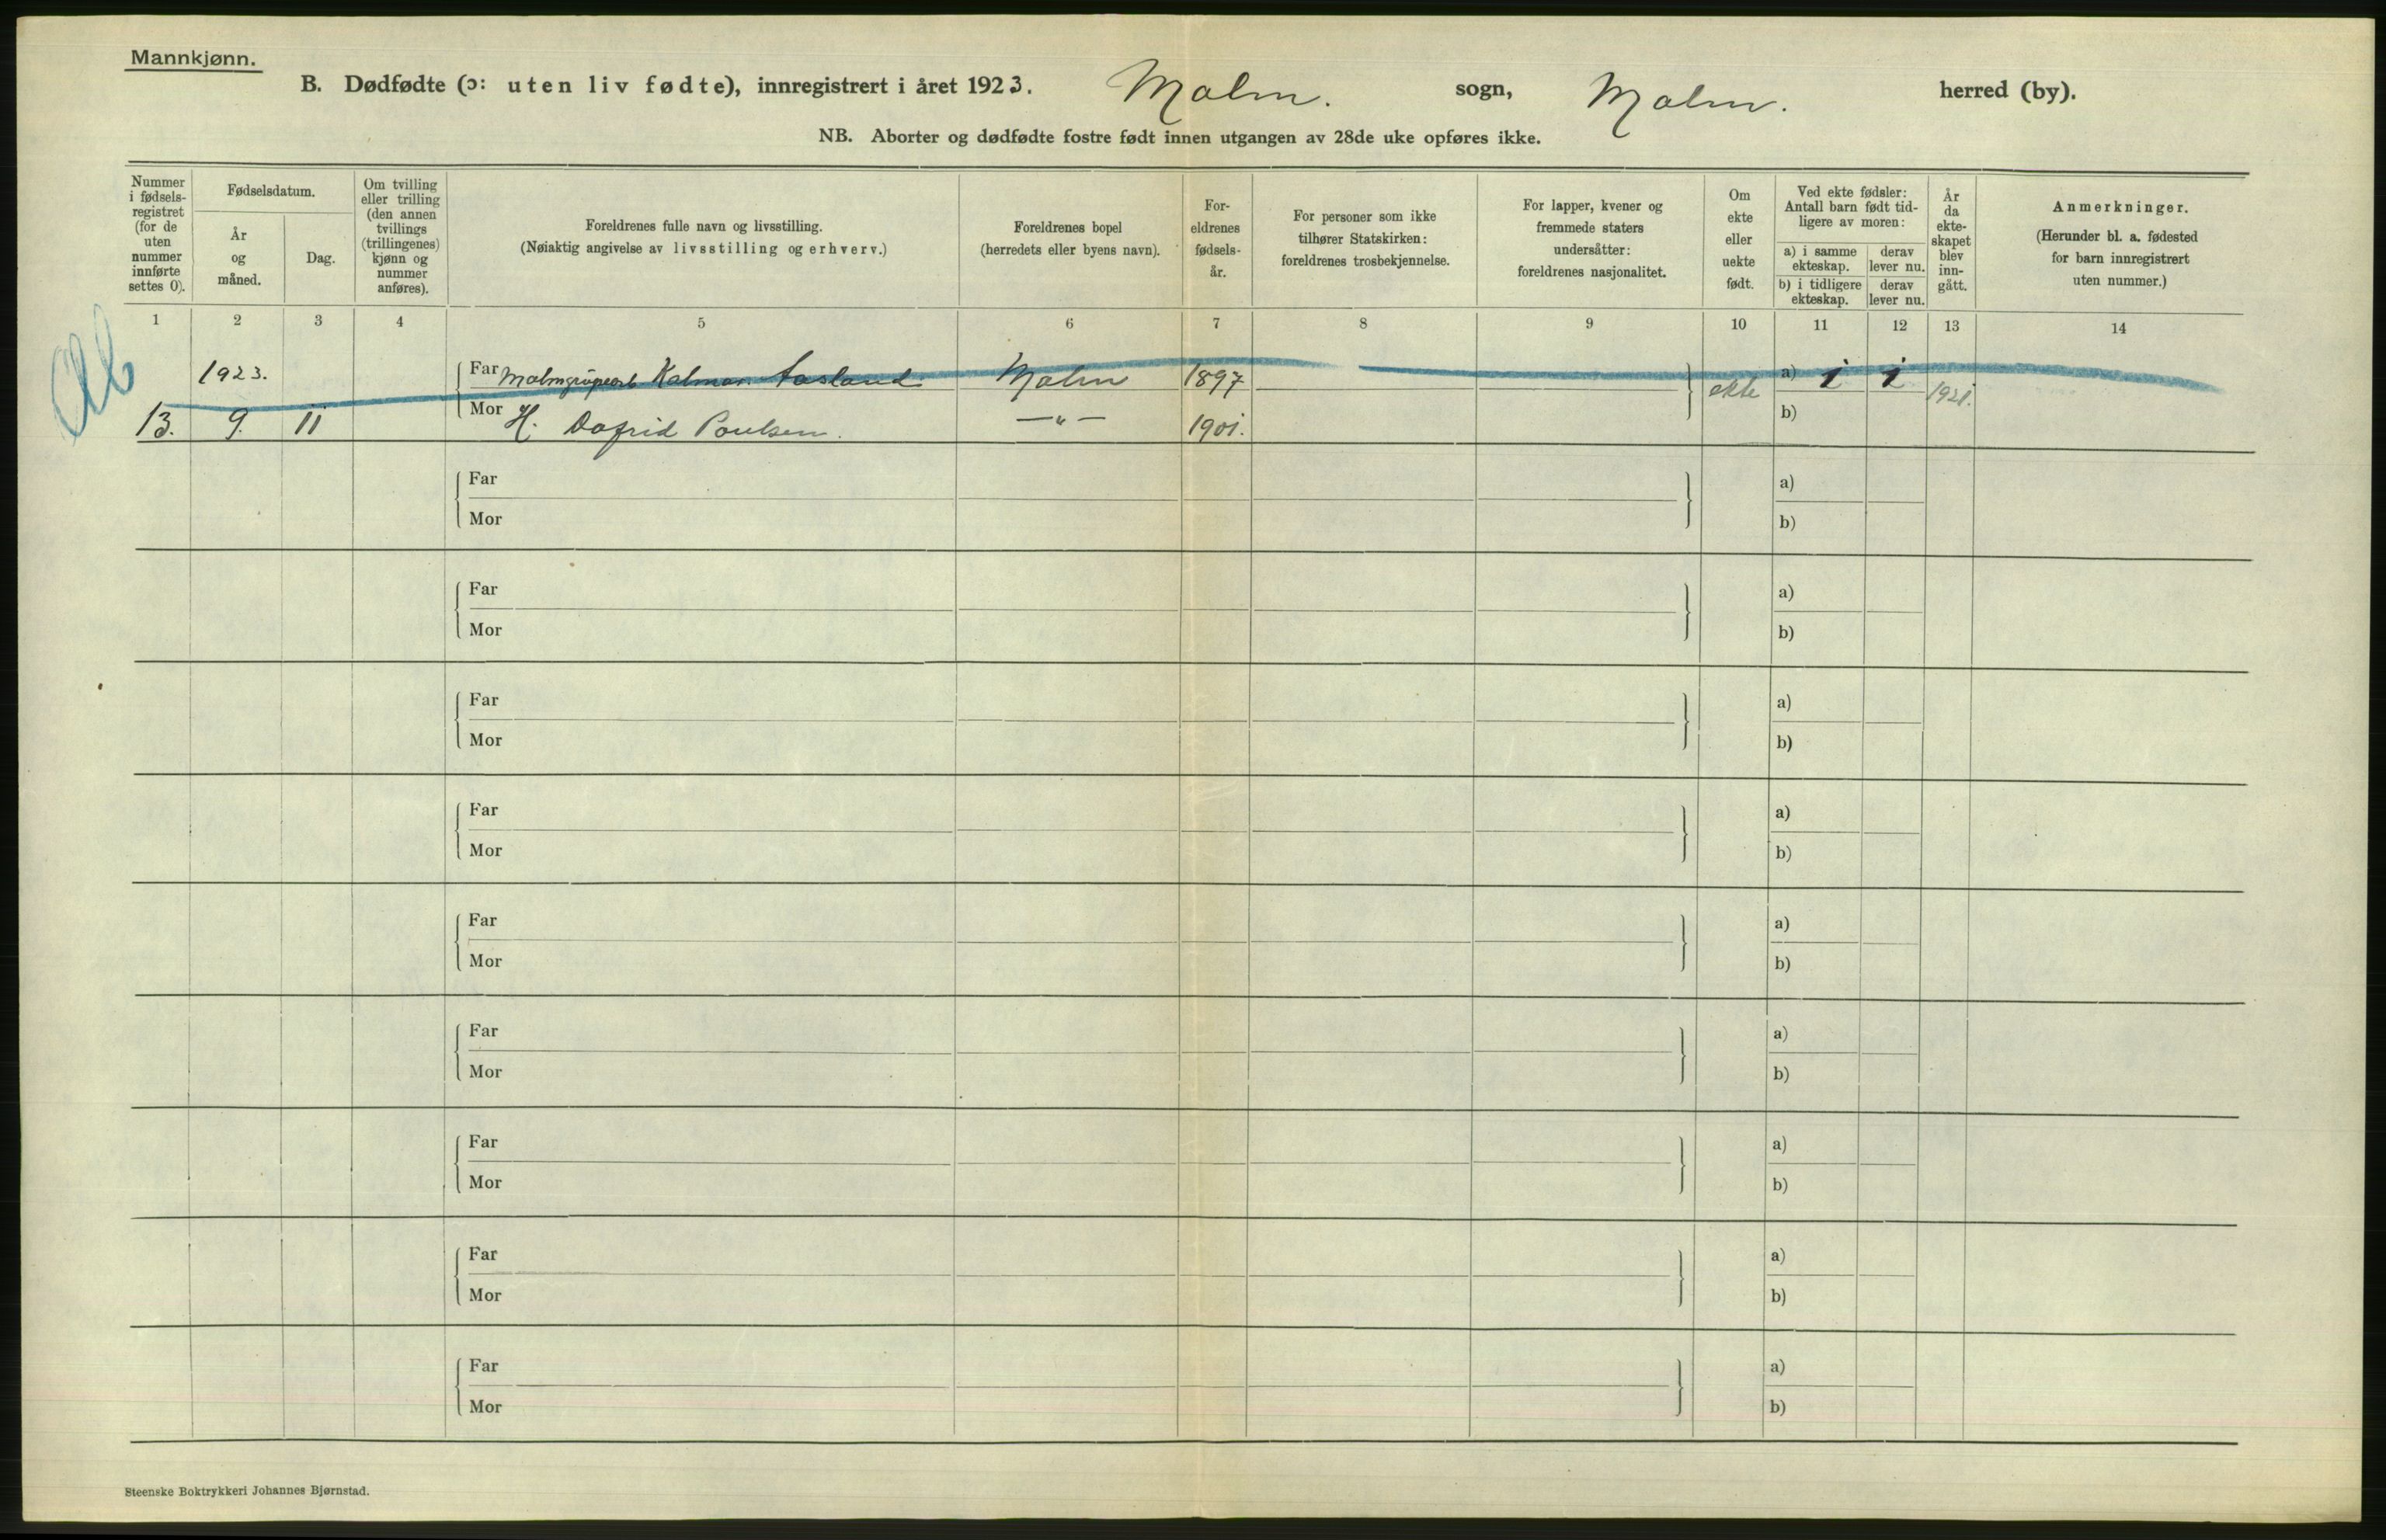 Mannkjønn.
B. Dødfødte (ɔ: uten liv fødte), innregistrert i året 1923. Malm. sogn, Malm. herred (by).
NB. Aborter og dødfødte fostre født innen utgangen av 28de uke opføres ikke.
Nummer
i fødsels-
registret
(for de
uten
nummer
innførte
settes 0).
Fødselsdatum.
År
og
måned.
Dag.
Om tvilling
eller trilling
(den annen
tvillings
(trillingenes)
kjønn og
nummer
anføres).
Foreldrenes fulle navn og livsstilling.
(Nøiaktig angivelse av livsstilling og erhverv.)
Foreldrenes bopel
(herredets eller byens navn).
For-
eldrenes
fødsels-
år.
For personer som ikke
tilhører Statskirken:
foreldrenes trosbekjennelse.
For lapper, kvener og
fremmede staters
undersåtter:
foreldrenes nasjonalitet.
Om
ekte
eller
uekte
født.
Ved ekte fødsler:
Antall barn født tid-
ligere av moren:
a) i samme
ekteskap.
derav
lever nu.
b) i tidligere
ekteskap.
derav
lever nu.
År
da
ekte-
skapet
blev
inn-
gått.
Anmerkninger.
(Herunder bl. a. fødested
for barn innregistrert
uten nummer.)
1 2 3 4 5 6 7 8 9 10 11 12 13 14
1923. Far Kalmar Aasland Malm 1897 ekte a) 1 1 1921.
13. 9. 11 Mor H. Dafrid Poulsen. —"— 1901. b)
Far a)
Mor b)
Far a)
Mor b)
Far a)
Mor b)
Far a)
Mor b)
Far a)
Mor b)
Far a)
Mor b)
Far a)
Mor b)
Far a)
Mor b)
Far a)
Mor b)
Steenske Boktrykkeri Johannes Bjørnstad.